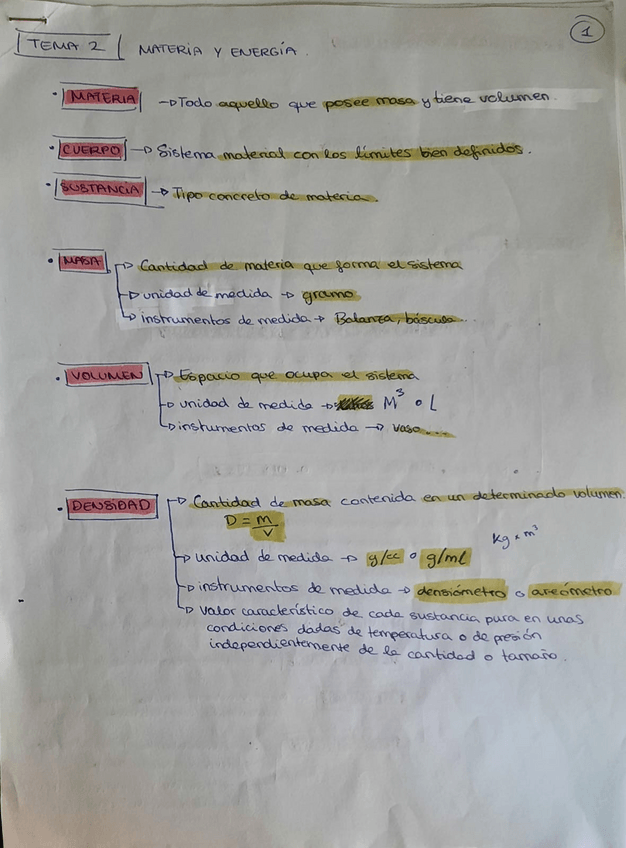 1
TEMA 2 MATERIA Y ENERGÍA.
• MATERIA → Todo aquello que posee masa y tiene volumen.
• CUERPO → Sistema material con los límites bien definidos.
• SUSTANCIA → Tipo concreto de materia.
• MASA → Cantidad de materia que forma el sistema
→ unidad de medida → gramo
→ instrumentos de medida → Balanza, báscula...
• VOLUMEN → Espacio que ocupa el sistema
→ unidad de medida → M³ o L
→ instrumentos de medida → vaso....
• DENSIDAD → Cantidad de masa contenida en un determinado volumen.
D = M/V
Kg x m³
→ unidad de medida → g/cc o g/ml
→ instrumentos de medida → densiómetro o areómetro
→ valor característico de cada sustancia pura en unas
condiciones dadas de temperatura o de presión
independientemente de la cantidad o tamaño.